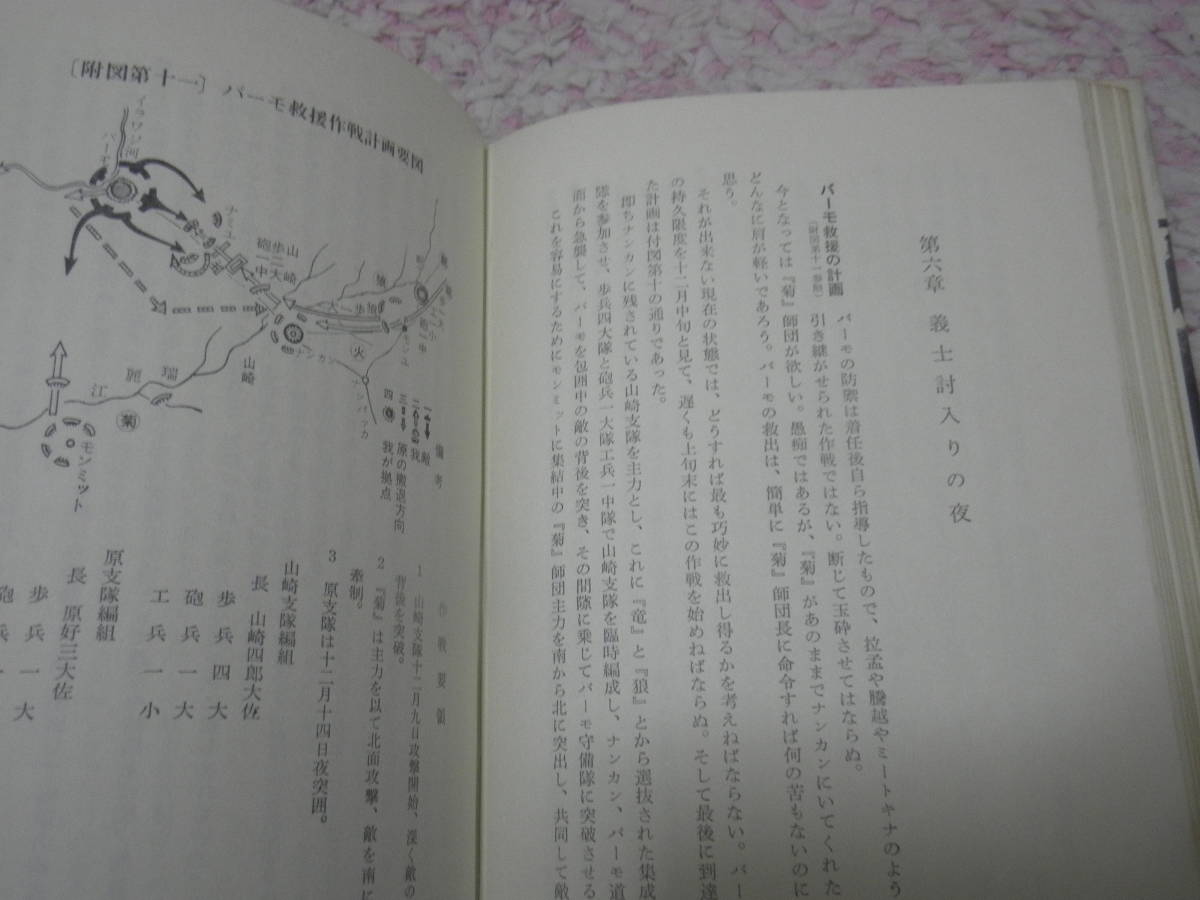 第六章 義士討入りの夜
バーモ救援の計画
(附図第十一参照)
バーモの防禦は着任後自ら指導したもので、拉孟や騰越やミートキナのよう
引き継がせられた作戦ではない。断じて玉砕させてはならぬ。
今となっては『菊』師団が欲しい。愚痴ではあるが、『菊』があのままでナンカンにいてくれた
どんなに肩が軽いであろう。バーモの救出は、簡単に『菊』師団長に命令すれば何の苦もないのに
思う。
それが出来ない現在の状態では、どうすれば最も巧妙に救出し得るかを考えねばならない。バー
の持久限度を十二月中旬と見て、遅くも上旬末にはこの作戦を始めねばならぬ。そして最後に到達
た計画は付図第十の通りであった。
即ちナンカンに残されている山崎支隊を主力とし、これに『竜』と『狼』とから選抜された集成
隊を参加させ、歩兵四大隊と砲兵一大隊工兵一中隊で山崎支隊を臨時編成し、ナンカン、バーモ道
面から急襲して、バーモを包囲中の敵の背後を突き、その間隙に乗じてバーモ守備隊に突破させる
これを容易にするためにモンミットに集結中の『菊』師団主力を南から北に突出し、共同して敵
〔附図第十一〕 バーモ救援作戦計画要図
イラワジ河
バーモ
ナミユ
山崎
歩二大
砲一中
ナンカン
火
モンユ
ナンパッカ
山崎
瑞麗江
菊
モンミット
備考
一 敵
二 我
三 原の撤退方向
四 我が拠点
作戦要領
1 山崎支隊十二月九日攻撃開始、深く敵の
背後を突破。
2 『菊』は主力を以て北面攻撃、敵を南に
牽制。
3 原支隊は十二月十四日夜突囲。
山崎支隊編組
長 山崎四郎大佐
歩兵四大
砲兵一大
工兵一小
原支隊編組
長 原好三大佐
歩兵一大
砲兵一